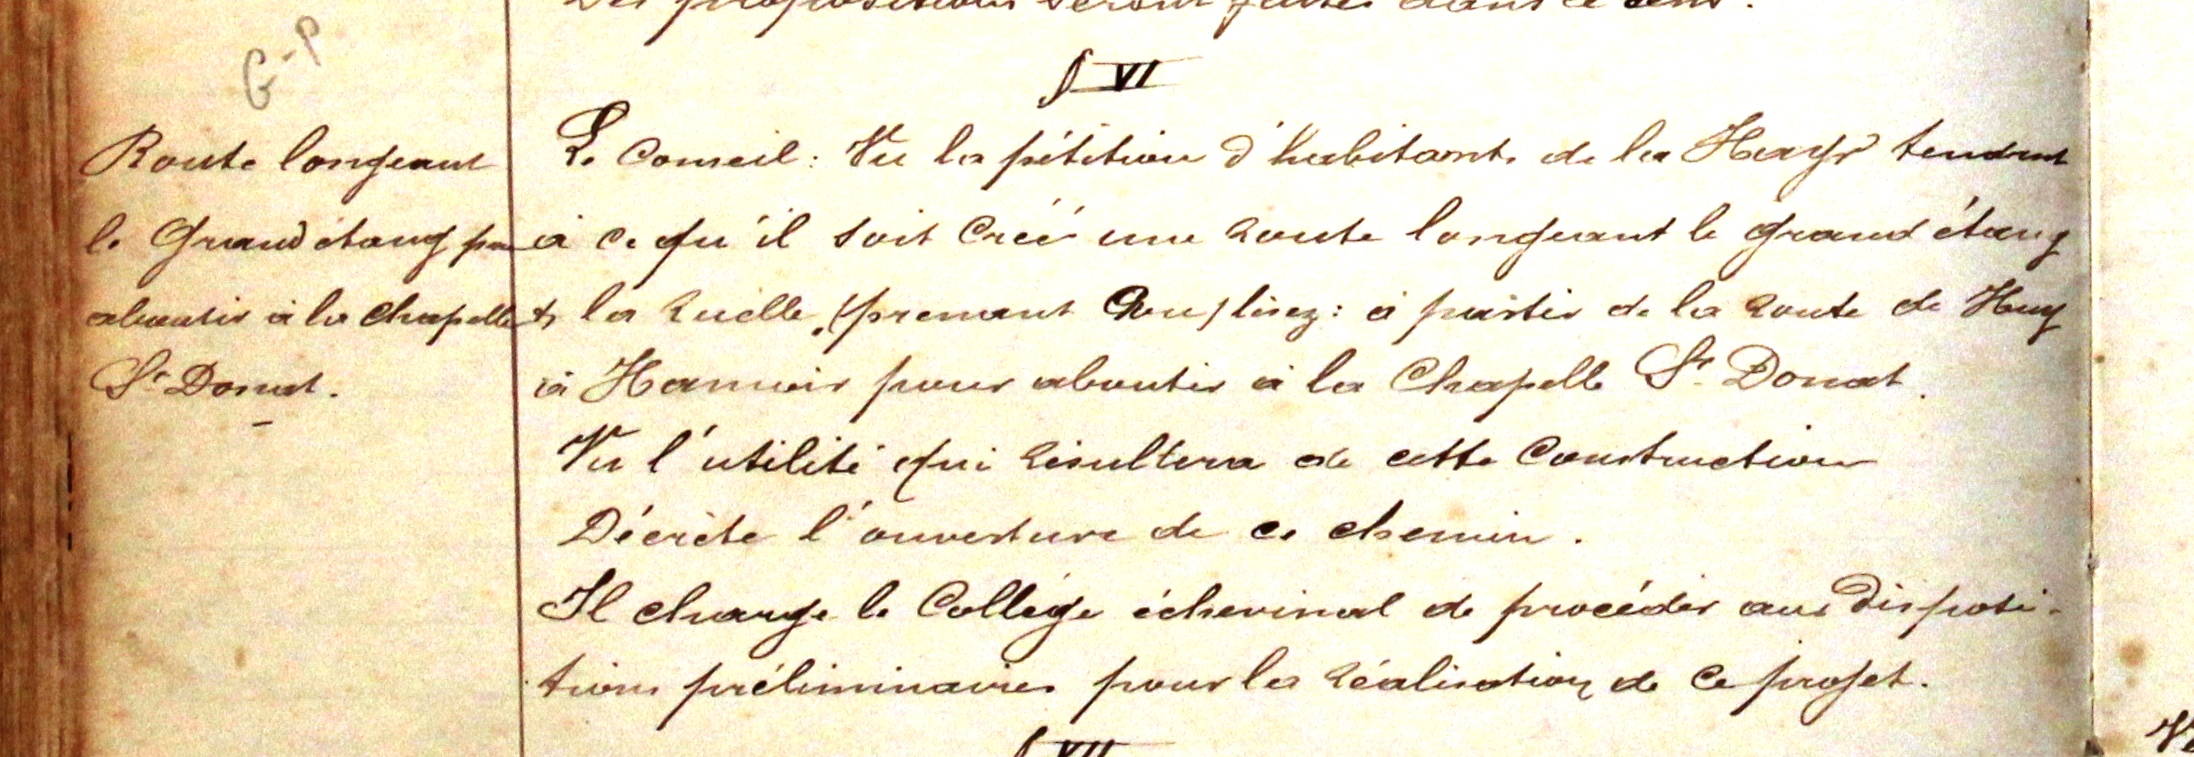 Des propositions seront faites dans ce sens.
§ VI
G-P
Route longeant
le Grand étang pour
aboutir à la chapelle
St Donat.
Le Conseil: Vu la pétition d'habitants de la Haye tendant
à ce qu'il soit créé une route longeant le grand étang
la ruelle (prenant) lisez: à partir de la route de Huy
à Hamoir pour aboutir à la Chapelle St Donat.
Vu l'utilité qui résultera de cette Construction
Décrète l'ouverture de ce chemin.
Il charge le Collège échevinal de procéder aux disposi-
tions préliminaires pour la réalisation de ce projet.
§ VII